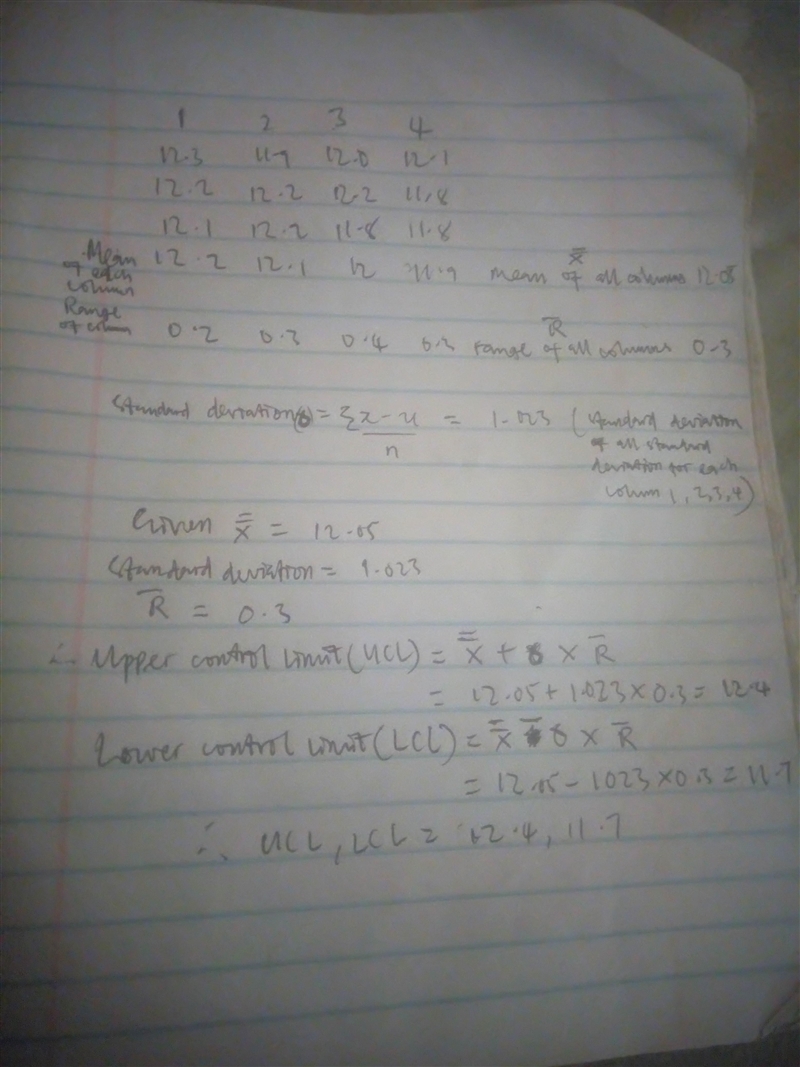 1 2 3 4
12.3 11.9 12.0 12.1
12.2 12.2 12.2 11.8
12.1 12.2 11.8 11.8
Mean of each column 12.2 12.1 12 11.9 mean of x̿ all columns 12.05
Range of column 0.2 0.3 0.4 0.3 range of R̄ all columns 0.3
Standard deviation(σ) = Σx-u/n = 1.023 (standard deviation
of all standard
deviation for each
column 1, 2, 3, 4)
Given x̿ = 12.05
Standard deviation = 1.023
R̄ = 0.3
∴ Upper control limit (UCL) = x̿ + σ × R̄
= 12.05 + 1.023 × 0.3 = 12.4
Lower control limit (LCL) = x̿ - σ × R̄
= 12.05 - 1023 × 0.3 = 11.7
∴ UCL, LCL = 12.4, 11.7